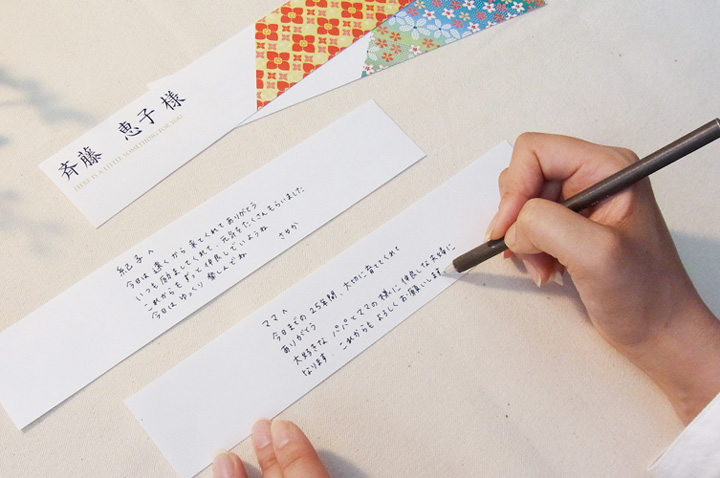 斉藤 恵子 様
HERE IS A LITTLE SOMETHING FOR YOU
紀子へ
今日は遠くから来てくれてありがとう
いつも励ましてくれて、元気をたくさんもらいました
これからもずっと仲良しでいようね
今日はゆっくり楽しんでね さやか
ママへ
今日までの25年間、大切に育ててくれて
ありがとう
大好きなパパとママの様に仲良しな夫婦に
なります。これからもよろしくお願いします